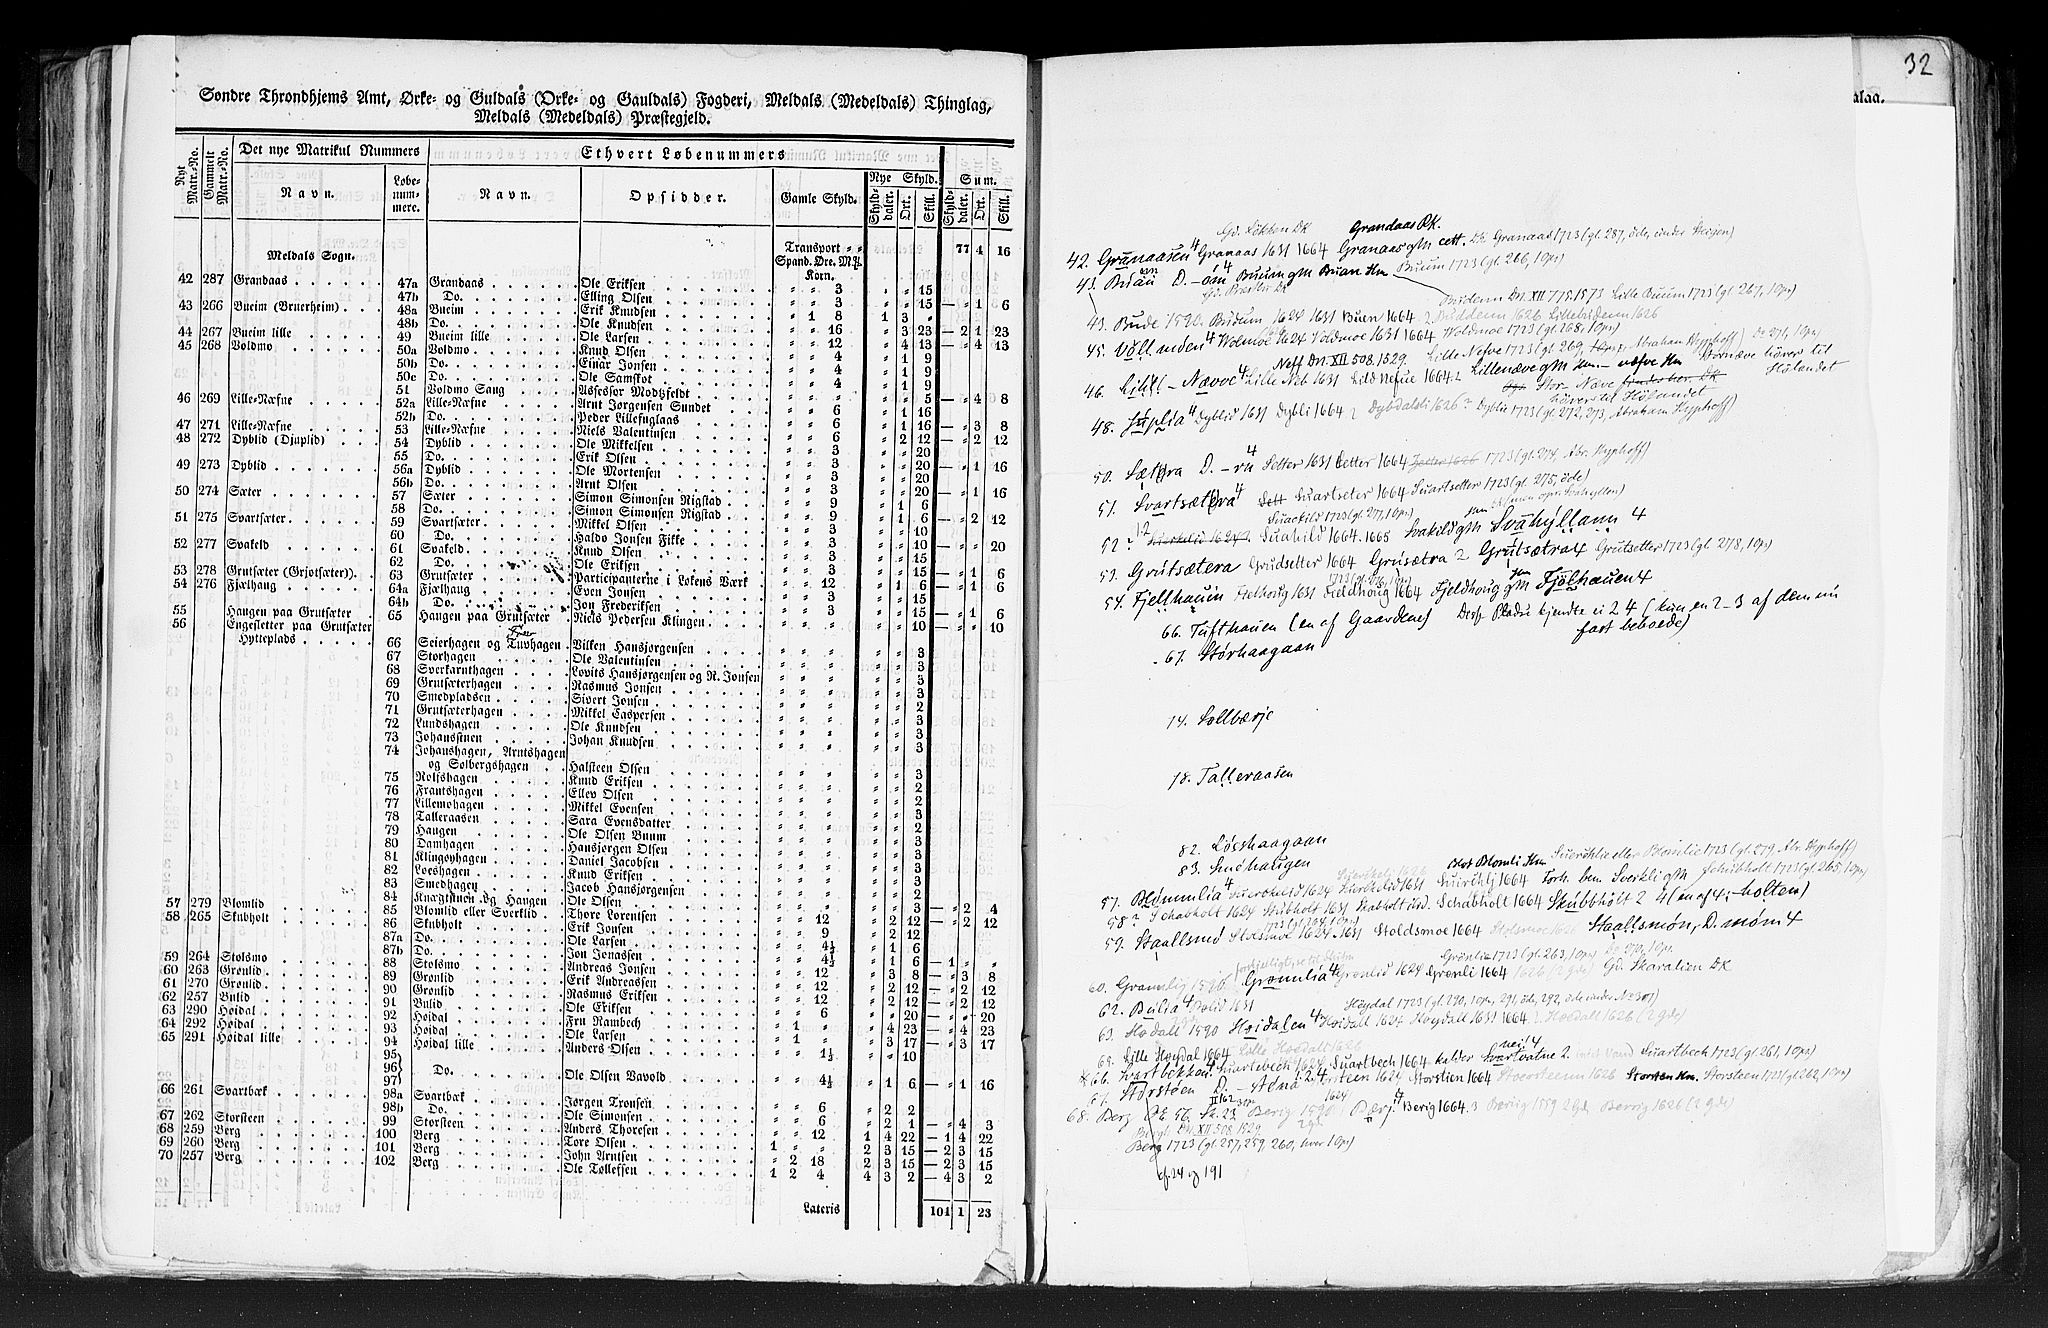 Søndre Throndhjems Amt, Ørke- og Guldals (Orke- og Gauldals) Fogderi, Meldals (Medeldals) Thinglag,
Meldals (Medeldals) Præstegjeld.
Nyt Matr.-No. Gammelt Matr.-No. Det nye Matrikul Nummers Ethvert Løbenummers
Navn. Løbe-nummere. Navn. Opsidder. Gamle Skyld. Nye Skyld. Sum.
Skylddaler. Ort. Skill. Skylddaler. Ort. Skill.
Meldals Sogn. Transport „ „ 77 4 16
Spand. Øre. Mrkl. Korn.
42 287 Grandaas 47a Grandaas Ole Eriksen „ „ 3 „ „ 15
47b Do. Elling Olsen „ „ 3 „ „ 15 — 1 6
43 266 Bueim (Bruerheim) 48a Bueim Erik Knudsen „ 1 8 1 3 „
48b Do. Ole Knudsen „ „ 16 „ 3 23 — 2 1 23
44 267 Bueim lille 49 Bueim lille Ole Larsen „ „ 12 „ 4 13 — 4 13
45 268 Voldmo 50a Voldmo Knud Olsen „ „ 4 „ 1 9
50b Do. Einar Jonsen „ „ 4 „ 1 9
50c Do. Ole Samskot „ „ 4 „ 1 9
51 Voldmo Sang Assessor Modtzfeldt „ „ „ „ „ 5 — 4 8
46 269 Lille-Næfne 52a Lille-Næfne Arnt Jørgensen Sundet „ „ 6 „ 1 16
52b Do. Peder Lillefuglaas „ „ 6 „ 1 16 — 3 8
47 271 Lille-Næfne 53 Lille-Næfne Niels Valentinsen „ „ 6 „ 2 12 — 2 12
48 272 Dyblid (Djuplid) 54 Dyblid Ole Mikkelsen „ „ 3 „ „ 20
55 Do. Erik Olsen „ „ 3 „ „ 20 — 1 16
49 273 Dyblid 56a Dyblid Ole Mortensen „ „ 3 „ „ 20
56b Do. Arnt Olsen „ „ 3 „ „ 20 — 1 16
50 274 Sæter 57 Sæter Simon Simonsen Rigstad „ „ 9 „ 1 6
58 Do. Simon Simonsen Rigstad „ „ 9 „ 1 6 — 2 12
51 275 Svartsæter 59 Svartsæter Mikkel Olsen „ „ 3 „ „ 10
60 Do. Haldo Jonsen Fikke „ „ 3 „ „ 10 — „ 20
52 277 Svakeld 61 Svakeld Knud Olsen „ „ 3 „ „ 15
62 Do. Ole Eriksen „ „ 3 „ „ 15 — 1 6
53 278 Grutsæter (Grjotsæter) 63 Grutsæter Participanterne i Løkens Værk „ „ 12 „ 1 6 — 1 6
54 276 Fjælhaug 64a Fjælhaug Even Jonsen „ „ 3 „ „ 15
64b Do. Jon Frederiksen „ „ 3 „ „ 15 — 1 6
55 Haugen paa Grutsæter 65 Haugen paa Grutsæter Niels Pedersen Klingen „ „ „ „ „ 10 — „ 10
56 Engesletter paa Grutsæter
Hytteplads 66 Seierhagen og Tuvhagen Vilken Hansjørgensen „ „ „ „ „ 3
67 Storhagen Ole Valentinsen „ „ „ „ „ 3
68 Sverkarnthagen Lovits Hansjørgensen og N. Jonsen „ „ „ „ „ 3
69 Grutsæterhagen Rasmus Jonsen „ „ „ „ „ 3
70 Smedpladsen Sivert Jonsen „ „ „ „ „ 2
71 Grutsæterhagen Mikkel Caspersen „ „ „ „ „ 3
72 Lundshagen Ole Knudsen „ „ „ „ „ 3
73 Johansstuen Johan Knudsen „ „ „ „ „ 3
74 Johanshagen, Arntshagen
og Solbergshagen Halsteen Olsen „ „ „ „ „ 3
75 Rolfshagen Knud Eriksen „ „ „ „ „ 2
76 Frantshagen Ellev Olsen „ „ „ „ „ 2
77 Lillemohagen Mikkel Evensen „ „ „ „ „ 2
78 Talleraasen Sara Evensdatter „ „ „ „ „ 3
79 Haugen Ole Olsen Buum „ „ „ „ „ 2
80 Damhagen Hansjørgen Olsen „ „ „ „ „ 3
81 Klingenhagen Daniel Jacobsen „ „ „ „ „ 3
82 Loeshagen Knud Eriksen „ „ „ „ „ 2
83 Smedhagen Jacob Hansjørgensen „ „ „ „ „ 2
84 Knægtstuen og Haugen Ole Olsen „ „ „ „ „ 3 — 2 4
57 279 Blomlid 85 Blomlid eller Sverklid Thore Lorentsen „ „ 12 „ 2 12 — 2 12
58 265 Skubholt 86 Skubholt Erik Jonsen „ „ 9 „ 2 12
87a Do. Ole Larsen „ „ 4½ „ 1 6
87b Do. Jon Jonassen „ „ 4½ „ 1 6 — 1 „ „
59 264 Stolsmo 88 Stolsmo Andreas Jonsen „ „ 12 „ 3 8 — 3 8
60 263 Grønlid 89 Grønlid Erik Andreassen „ „ 12 „ 2 12 — 2 12
61 270 Grønlid 90 Grønlid Rasmus Eriksen „ „ 12 „ 2 12 — 2 12
62 257 Bulid 91 Bulid Ole Eriksen „ „ 6 „ „ 20 — „ 20
63 290 Høidal 92 Høidal Fru Rambech „ 1 „ „ 4 23 — 4 23
64 292 Høidal 93 Høidal Ole Larsen „ 1 „ „ 3 17 — 3 17
65 291 Høidal lille 94 Høidal lille Anders Olsen „ „ 1½ „ „ 10
95
96 Do. Ole Olsen Vavold „ „ 4½ „ 1 6 — 1 16
97
66 261 Svartbæk 98a Svartbæk Jørgen Tronsen „ „ 6 „ 2 2
98b Do. Ole Simonsen „ „ 6 „ 2 1 — 4 3
67 262 Storsteen 99 Storsteen Anders Thoresen „ „ 12 1 4 22 — 1 4 22
68 259 Berg 100 Berg Tore Olsen 1 „ „ 2 3 15 — 2 3 15
69 260 Berg 101 Berg John Arntsen „ 2 18 2 3 15 — 2 3 15
70 257 Berg 102 Berg Ole Tollefsen 1 2 4 4 3 2 — 4 3 2
Lateris 101 1 23
32
alag.
Gd. Løkken DK Grandaas DK.
42. Granaasen 4 Granaas 1631 1664 Granaas gM cett. DK. Granaas 1723 (gl. 287, öde, under
43. D. Buum gM Buan Hn Buum 1723 (gl. 266, 1 op)
Büdenn DN. XII 775. 1573 Lille Buum 1723 (gl. 267, 1 op)
43. Bude 1590. Budum 1624 1631 Büen 1664. 2 Buddenn 1626 Lillebüdenn 1626
45. Völlmden 4 Wolmoe 1624 Voldmoe 1631 1664 Woldmoe 1723 (gl. 268, 1 op)
Neff DN. XII 508, 1529. Lille Nefve 1723 (gl. 269, Abraham Hyphoff) Do 271, 1 op)
46. Litl- Nævve 4 Lille Neb 1631 Lild Nefue 1664. 2 Lillenæve gM Hn. - næfve Hn Stornæve hörer til Hölandet
Stor- Næve hörer til Hölandet
48. Jupliä 4 Dyblid 1631 Dybli 1664 2 Dybdalsli 1626? Dyblie 1723 (gl. 272, 273, Abraham Hyphoff)
50. Sætra D. - rn 4 Setter 1631 Setter 1664 1723 (gl. 274 Abr. Hyphoff)
51. Svartsætra 4 Suartseter 1664 Suartsetter 1723 (gl. 275, öde)
Suackild 1723 (gl. 277, 1 op)
52. Suakild 1664. 1668 Svakild gM Svahÿllann 4
53. Grutsætera Grudsetter 1664 Grusætra 2 Grutsætra 4 Grutsetter 1723 (gl. 278, 1 op)
54. Fjellhauin Fieldhoug 1664 Fjeldhoug gM Fjölhauen 4
66. Tufthauen (en af Gaardene) Disse Pladse kjendte ei 2 4 (kun en 2-3 af dem nu
fast beboede)
67. Störhaagaan
14. Sollbærje
78. Talleraasen
82. Lösshaagaan
83. Smehaugen
57. Blömmlia 4 Suerckelid 1624 Suirchlj 1664 Sverkli gM
58? Schabholt 1624 Skubholt 1631 Schabholt 1664 Skübbhölt 2 4 (en af 4: -holten)
59. Staallsmo Stolsmoe 1624. 1631 Stoldsmoe 1664 Stolsmoe 1626 Staallsmön, D. möm 4
Grönlie 1723 (gl. 263, 1 op) Do 270, 1 op.
60. Grannlig 1590. Grönnlia 4 Grönlid 1624 Grönli 1664 1626 (2 gde) Gd. Skaralien DK
62. Bulia 4 Bolid 1631
Höydal 1723 (gl. 290, 1 op, 291, öde, 292, öde under No 301)
63. Hödall 1590 Höidalen 4 Höidall 1624 Höydall 1631 1664 2 Hosdall 1626 (2 gde)
65. Lille Höydal 1664 Lille Hosdall 1626
66. Svartbekken 4 Suartebech 1624 Suartbech 1664 kalder Svartvatne 2. Suartbech 1723 (gl. 261, 1 op)
67. Storstöen D. Storstien 1664 1626 Storsten Hn. Storsteen 1723 (gl. 262, 1 op)
68. Berg OE 56. Sk. 23 Berig 1590 Bærj 4 Berig 1664. 3 Bærüg 1559 2 gde Berrig 1626 (2 gde)
Bergh DN. XII 508, 1529
Berg 1723 (gl. 257, 259, 260, hver 1 op)
cf. 24 og 191